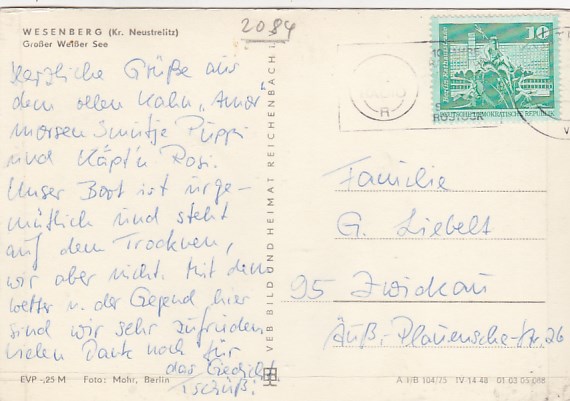 WESENBERG (Kr. Neustrelitz)
Großer Weißer See
2084
Herzliche Grüße aus
dem ollen Kahn „Amor"
Puppi
und Käpt'n Rosi.
Unser Boot ist urge-
mütlich und steht
auf dem Trocknen,
wir aber nicht. Mit dem
Wetter u. der Gegend hier
sind wir sehr zufrieden
Vielen Dank noch für
das Gedicht
Tschüß!
EVP -,25 M Foto: Mohr, Berlin
VEB BILD UND HEIMAT REICHENBACH I.
10
DEUTSCHE DEMOKRATISCHE REPUBLIK
ROSTOCK
R
Familie
G. Liebelt
95 Zwickau
Äuß. Plauensche-Str. 26
A 1/B 104/75 IV-14-48 01 03 05 088